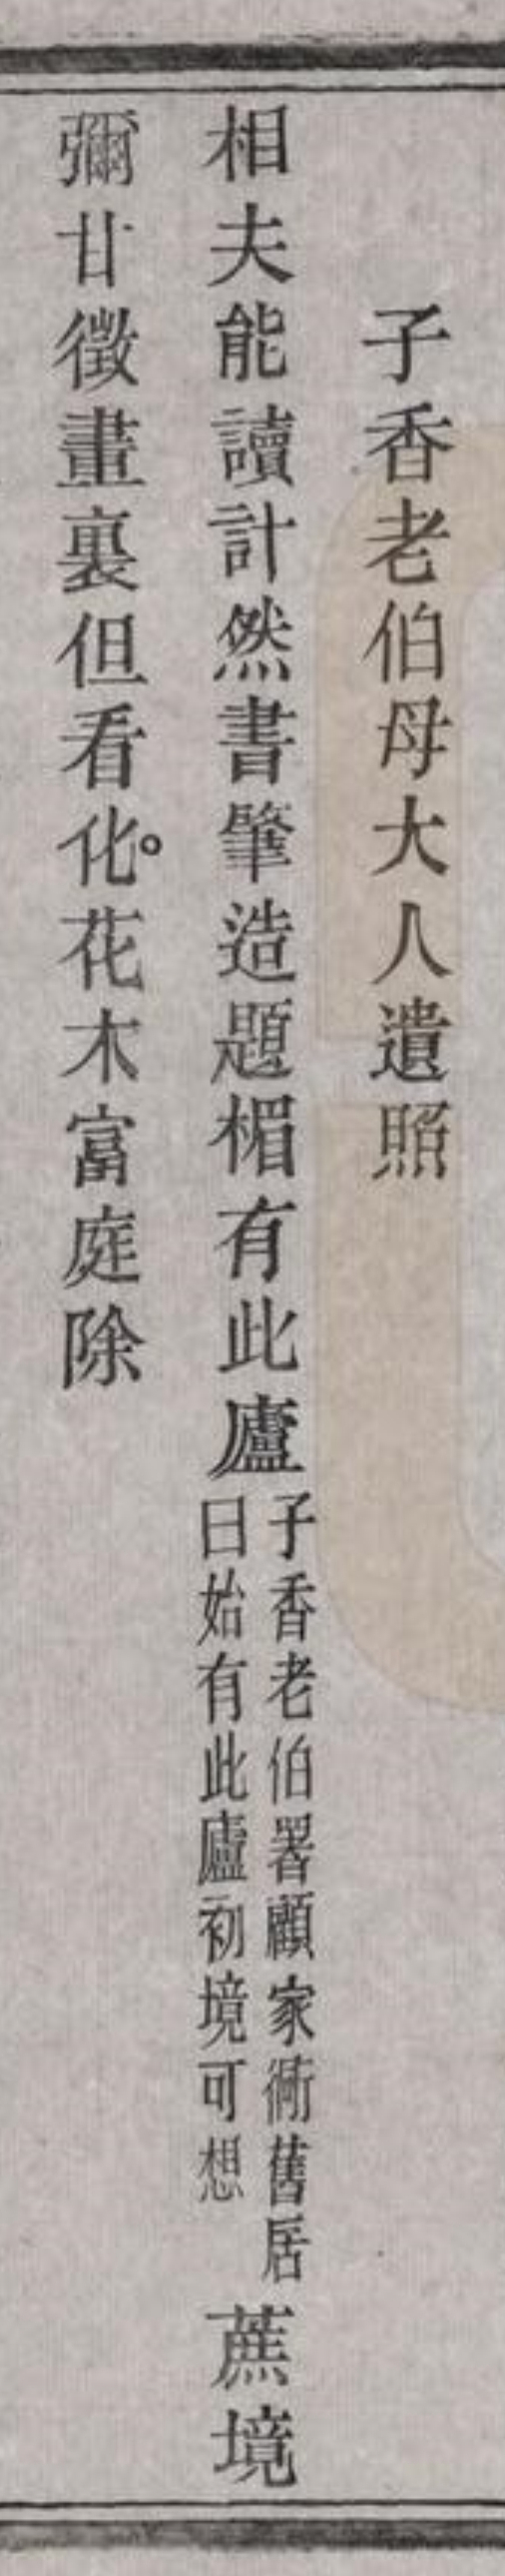 子香老伯母大人遺照
相夫能讀計然書肇造題楣有此廬
子香老伯署顧家衖舊居
曰始有此廬初境可想
蔗境
彌甘徵畫裏但看化。花木富庭除